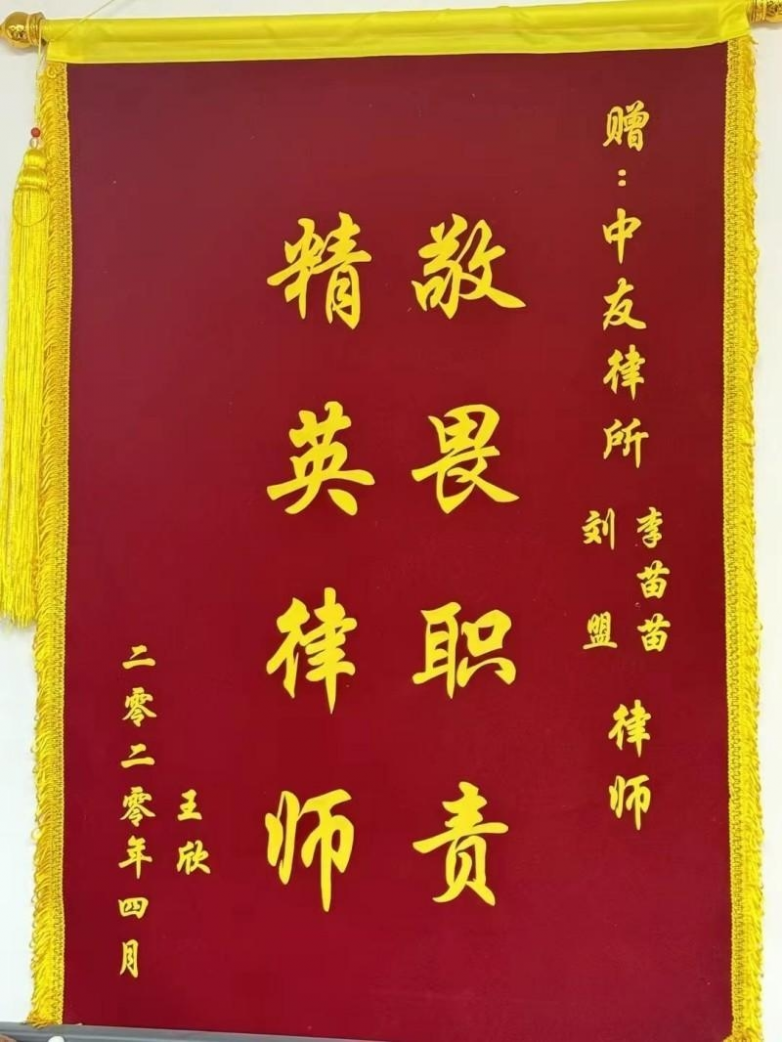 赠：中友律所
李苗苗
刘盟
律师
敬畏职责
精英律师
王欣
二零二零年四月